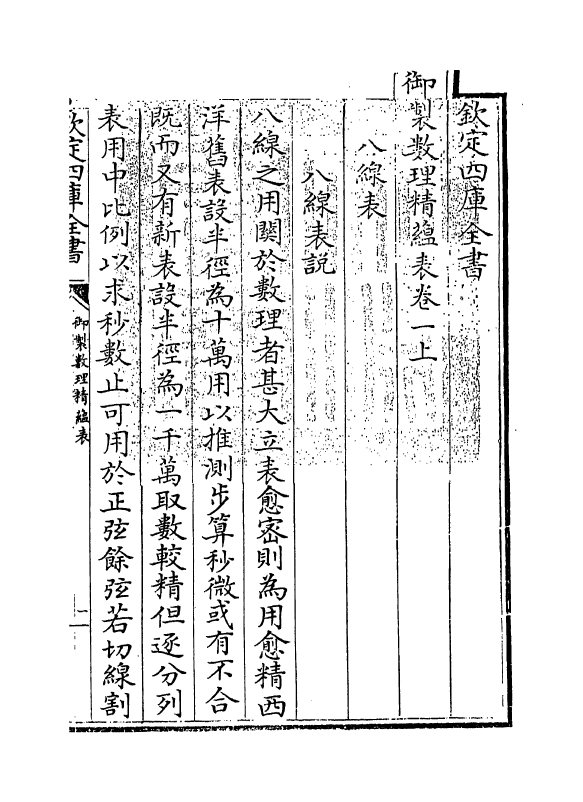 欽定四庫全書
御製數理精蘊表卷一上
八線表
八線表說
八線之用關於數理者甚大立表愈密則為用愈精西
洋舊表設半徑為十萬用以推測步算秒微或有不合
既而又有新表設半徑為一千萬取數較精但逐分列
表用中比例以求秒數止可用於正弦餘弦若切線割
欽定四庫全書
御製數理精蘊表
一